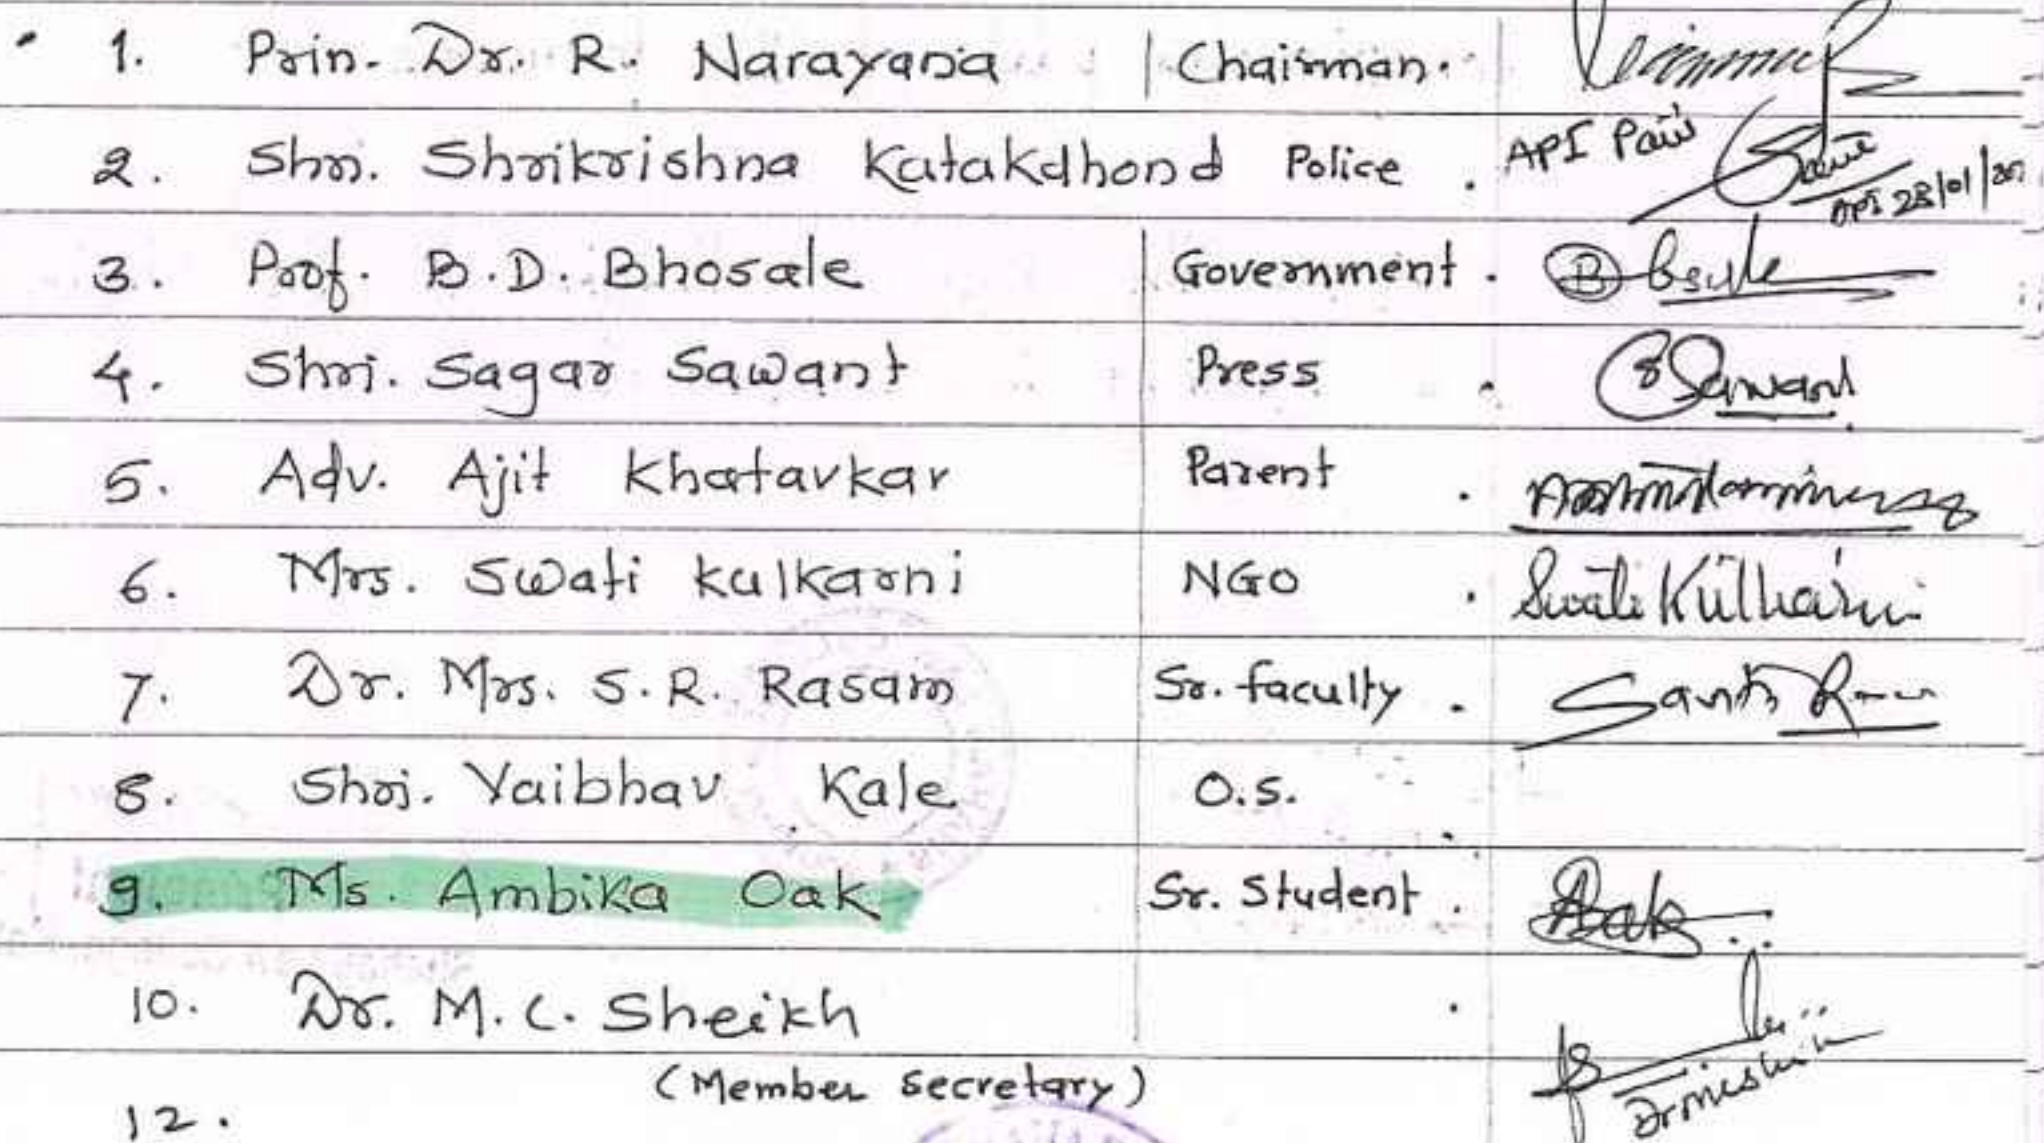 1. Prin. Dr. R. Narayana Chairman.
2. Shri. Shrikrishna Katakdhond Police . API
API 28/01/20
3. Prof. B.D. Bhosale Government .
4. Shri. Sagar Sawant Press . Sawant
5. Adv. Ajit Khatavkar Parent .
6. Mrs. Swati Kulkarni NGO . Swati Kulkarni
7. Dr. Mrs. S.R. Rasam Sr. faculty .
8. Shri. Vaibhav Kale O.S. .
9. Ms. Ambika Oak Sr. Student . Oak
10. Dr. M.C. Sheikh .
(Member Secretary)
12.